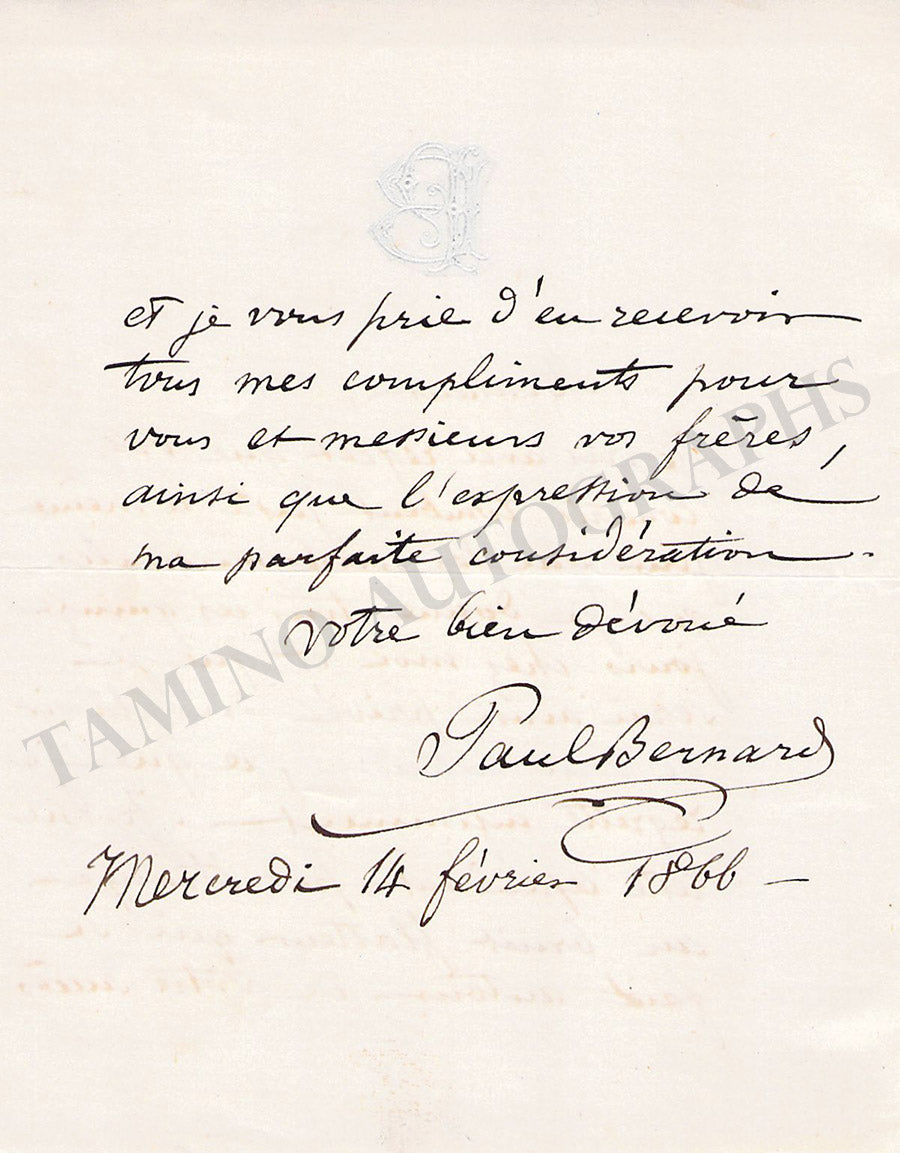 et je vous prie d'en recevoir
tous mes compliments pour
vous et messieurs vos frères,
ainsi que l'expression de
ma parfaite considération.
votre bien dévoué
Paul Bernard
Mercredi 14 février 1866 —
TAMINO AUTOGRAPHS